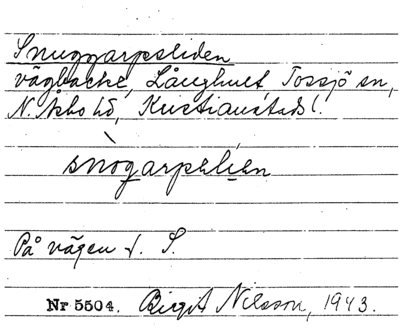 Snuggarpsliden
vägbacke, Långhult, Tossjö sn,
N. Åsbo hd, Kristianstads l.
snògarpslíen
På vägen t. S.
Nr 5504. Birgit Nilsson, 1943.